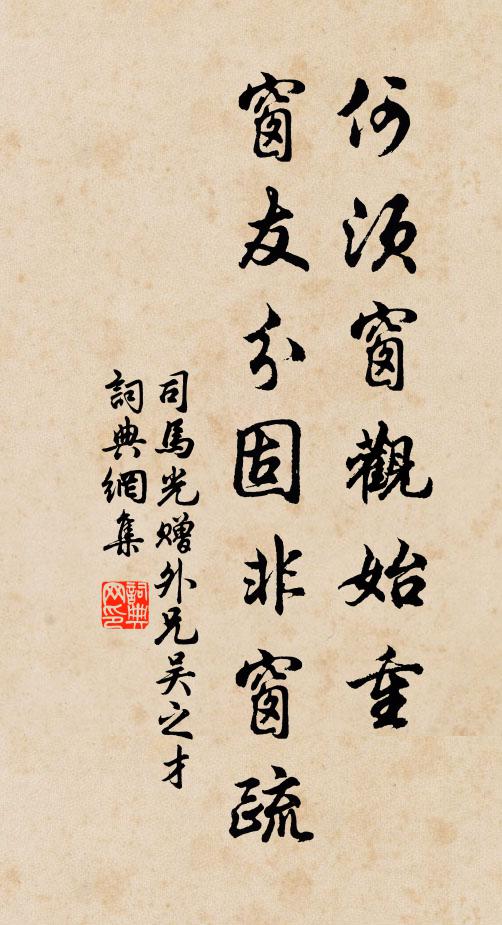 何須窗觀始重
窗友分固非窗疏
司馬光贈外兄吴之才
詞典網集
詞典網印